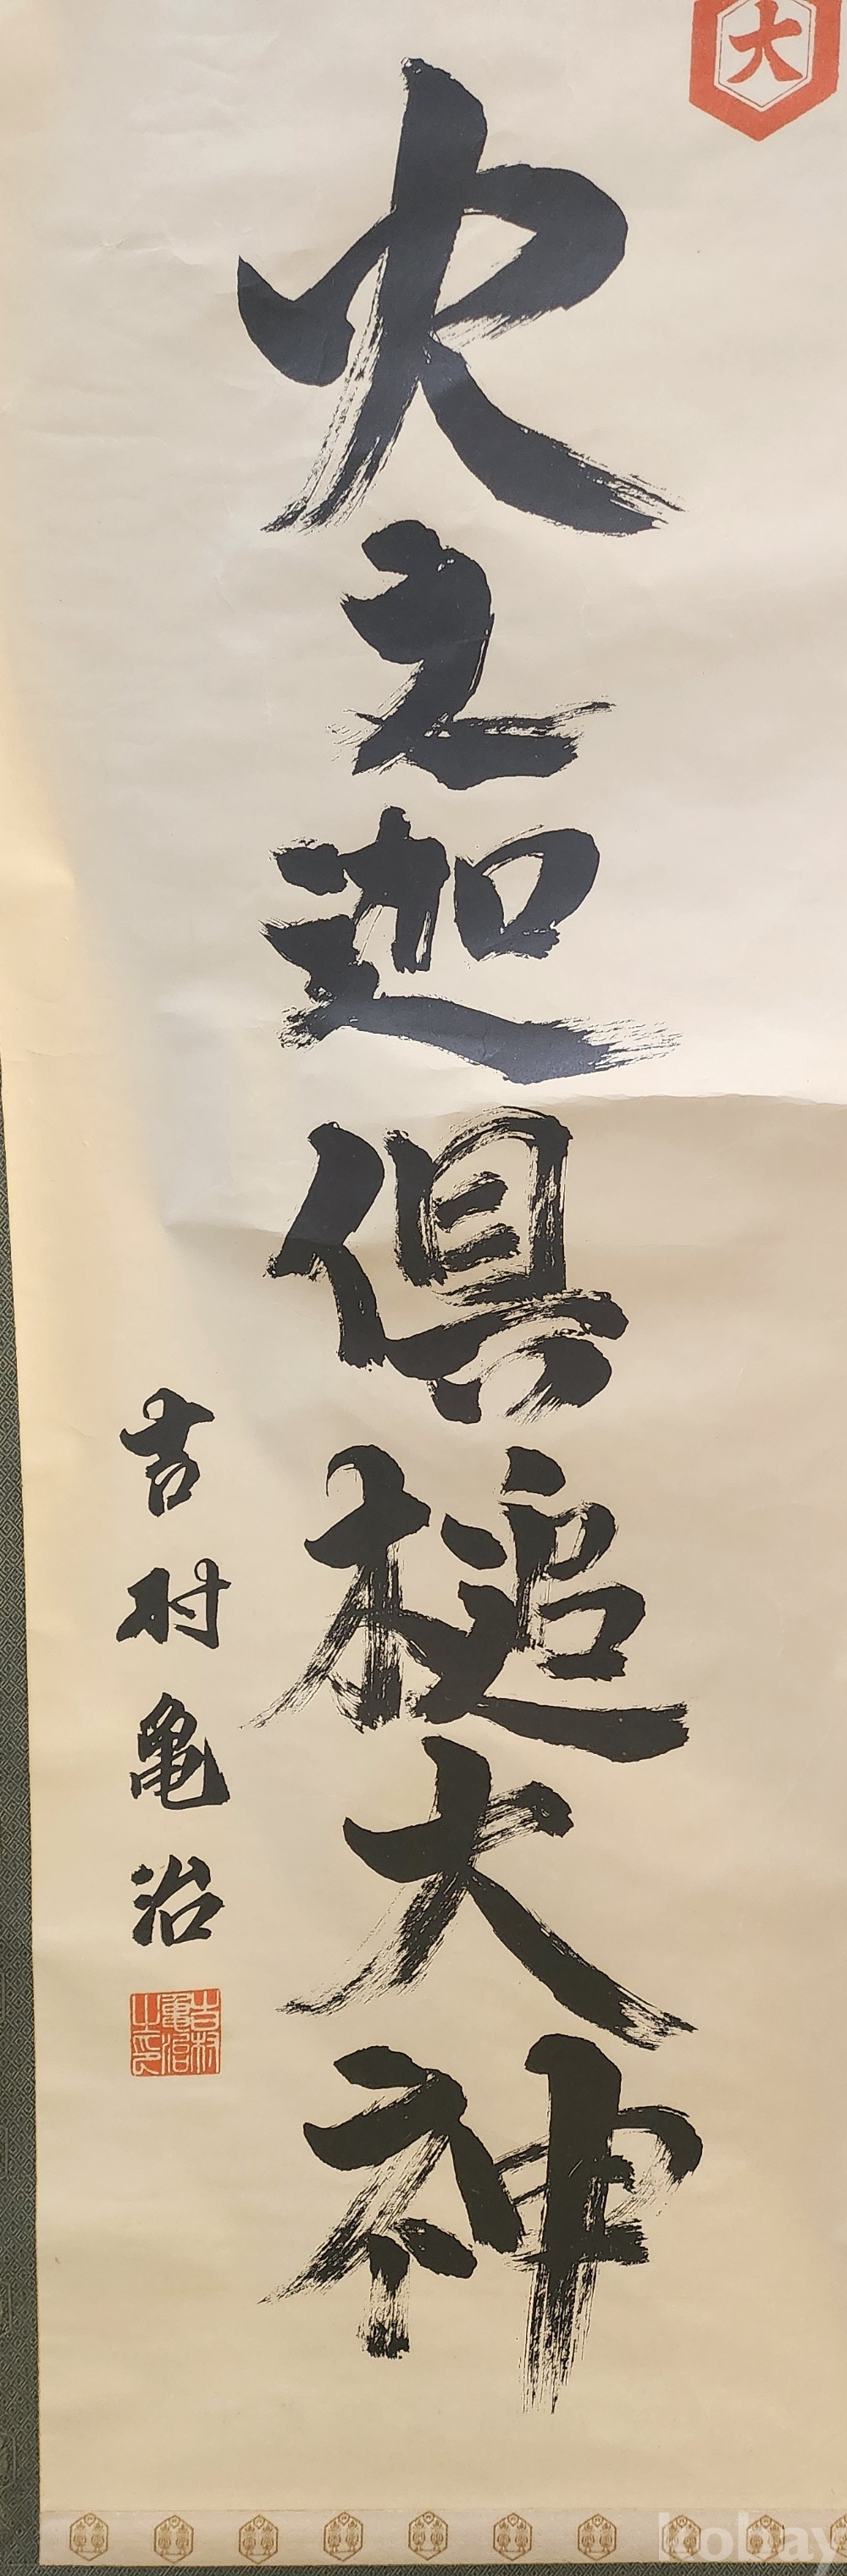 大
火之迦倶槌大神
吉村亀治
吉村亀治之印
kobay